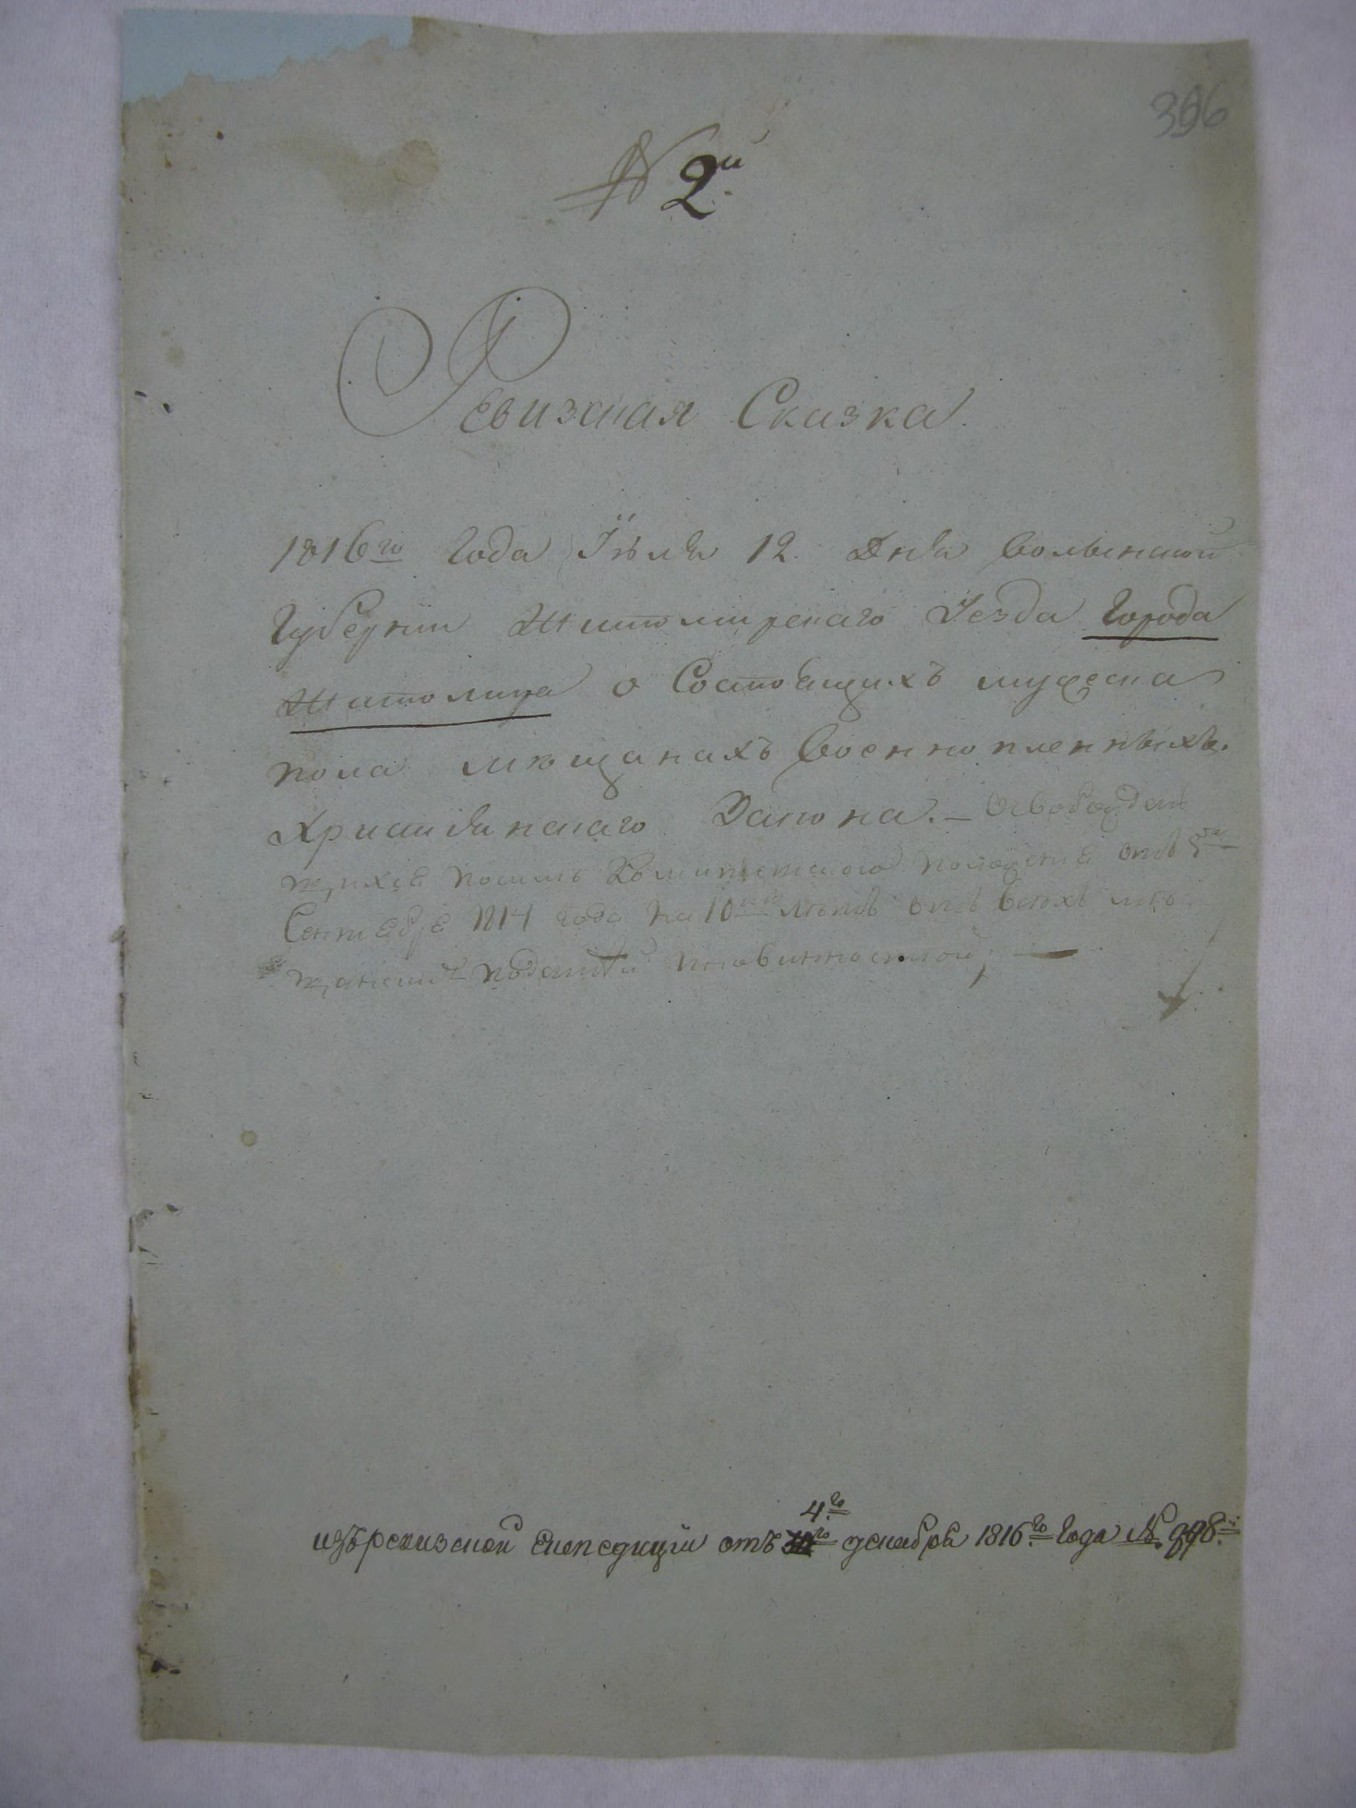 396
№ 2й
Ревизская Сказка.
1816го Года Іюля 12 Дня Волынской
Губернии Житомирскаго Уезда Города
Житомира о Состоящихъ мужеска
пола мещанахъ Военно пленныхъ.
Христианскаго Закона. — Освобожден
щихся положения отъ 5го
Сентября 1814 года на 10ть летъ отъ всехъ ме
щанскихъ податей повинностей, —
изъ ревизской експедиции отъ 4го декабря 1816го Года №